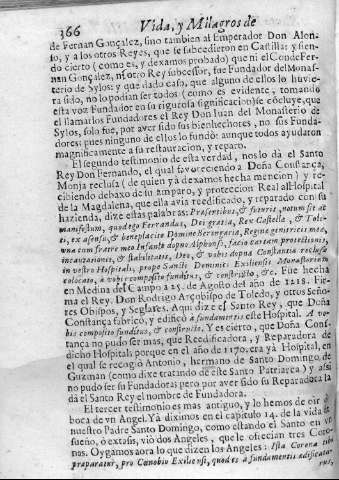 366 Vida, y Milagros de
de Fernan Gonçalez, sino tambien al Emperador Don Alon-
so, y a los otros Reyes, que se subcedieron en Castilla: y sien-
do cierto (como es, y dexamos probado) que ni el Conde Fer-
nan Gonçalez, ni otro Rey subcessor, fue Fundador del Monas-
terio de Sylos: y que dado caso, que alguno de ellos lo huvie-
ra sido, no lo podian ser todos (como es evidente, tomando
esta voz Fundador en su rigurosa significacion) se cõcluye, que
el llamarlos Fundadores el Rey Don Juan del Monasterio de
Sylos, solo fue, por aver sido sus bienhechores, no sus Funda-
dores: pues ninguno de ellos lo fundò: aunque todos ayudaron
magnificamente a su restauracion, y reparo.
El segundo testimonio de esta verdad, nos lo dà el Santo
Rey Don Fernando, el qual favoreciendo à Doña Constança,
Monja reclusa (de quien yà dexamos hecha mencion) y re-
cibiendo debaxo de su amparo, y proteccion Real al Hospital
de la Magdalena, que ella avia reedificado, y reparado con su
hazienda, dize estas palabras: Præsentibus, & futuris, notum sit ac
manifestum, quod ego Ferrandus, Dei gratia, Rex Castellæ, & Tole-
ti, ex assensu, & beneplacito Dominæ Berengariæ, Reginæ genitricis meæ,
una cum fratre meo Infante dopno Alphonso, facio cartam protectionis,
incautationis, & stabilitatis, Deo, & vobis dopna Constantia reclusæ
in vestro Hospitali, prope Sancti Dominici Exiliensis Monasterium
colocato, a vobis composito funditus, & constructo, &c. Fue hecha
en Medina del Campo a 25. de Agosto del año de 1218. Firma-
ma el Rey. Don Rodrigo Arçobispo de Toledo, y otros Seño-
res Obispos, y Seglares. Aqui dize el Santo Rey, que Doña
Constança fabricò, y edificò à fundamentis este Hospital. A vo-
bis composito funditus, & constructo. Y es cierto, que Doña Cons-
tança no pudo ser mas, que Reedificadora, y Reparadora de
dicho Hospital: porque en el año de 1170. era yà Hospital, en
el qual se recogiò Antonio, hermano de Santo Domingo de
Guzman (como dixe tratando de este Santo Patriarca) y assi
no pudo ser su Fundadora: pero por aver sido su Reparadora la
dà el Santo Rey el nombre de Fundadora.
El tercer testimonio es mas antiguo, y lo hemos de oir de
boca de vn Angel. Yà diximos en el capitulo 14. de la vida de
nuestro Padre Santo Domingo, como estando el Santo en vn
sueño, ò extasis, viò dos Angeles, que le ofrecian tres Coro-
nas. Oygamos aora lo que dizen los Angeles: Ista Corona tibi
præparatur, pro Cœnobio Exiliensi, quod es à fundamentis ædificatu-
rus,